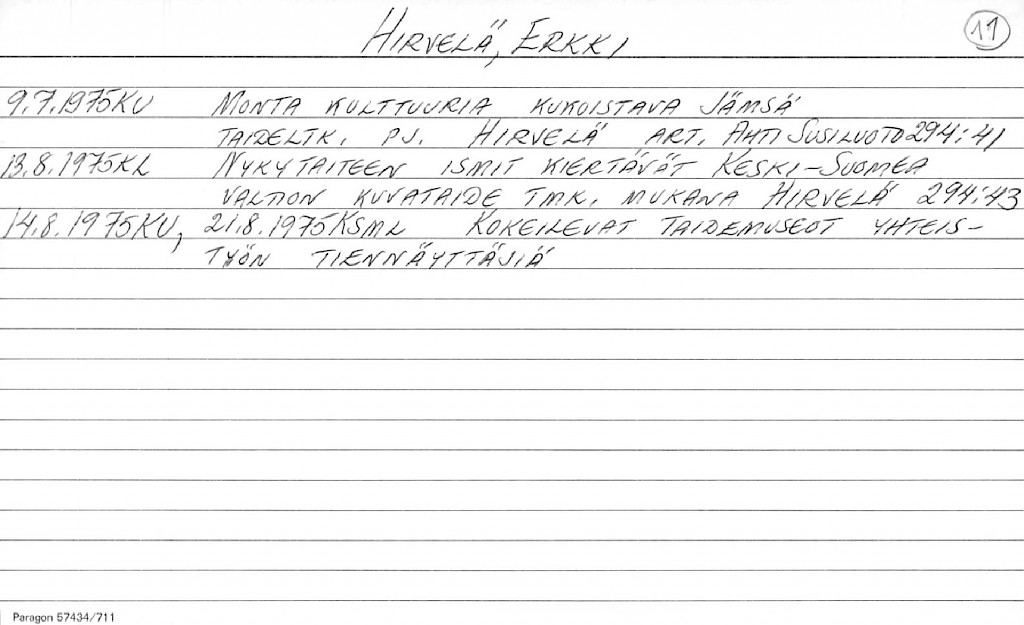 HIRVELÄ, ERKKI
11
9.7.1975KU MONTA KULTTUURIA KUKOISTAVA JÄMSÄ
TAIDELTK. PJ. HIRVELÄ ART. AHTI SUSILUOTO 294:41
13.8.1975KL NYKYTAITEEN ISMIT KIERTÄVÄT KESKI-SUOMEA
VALTION KUVATAIDE TMK. MUKANA HIRVELÄ 294:43
14.8.1975KU, 21.8.1975KSML KOKEILEVAT TAIDEMUSEOT YHTEIS-
TYÖN TIENNÄYTTÄJIÄ
Paragon 57434/711